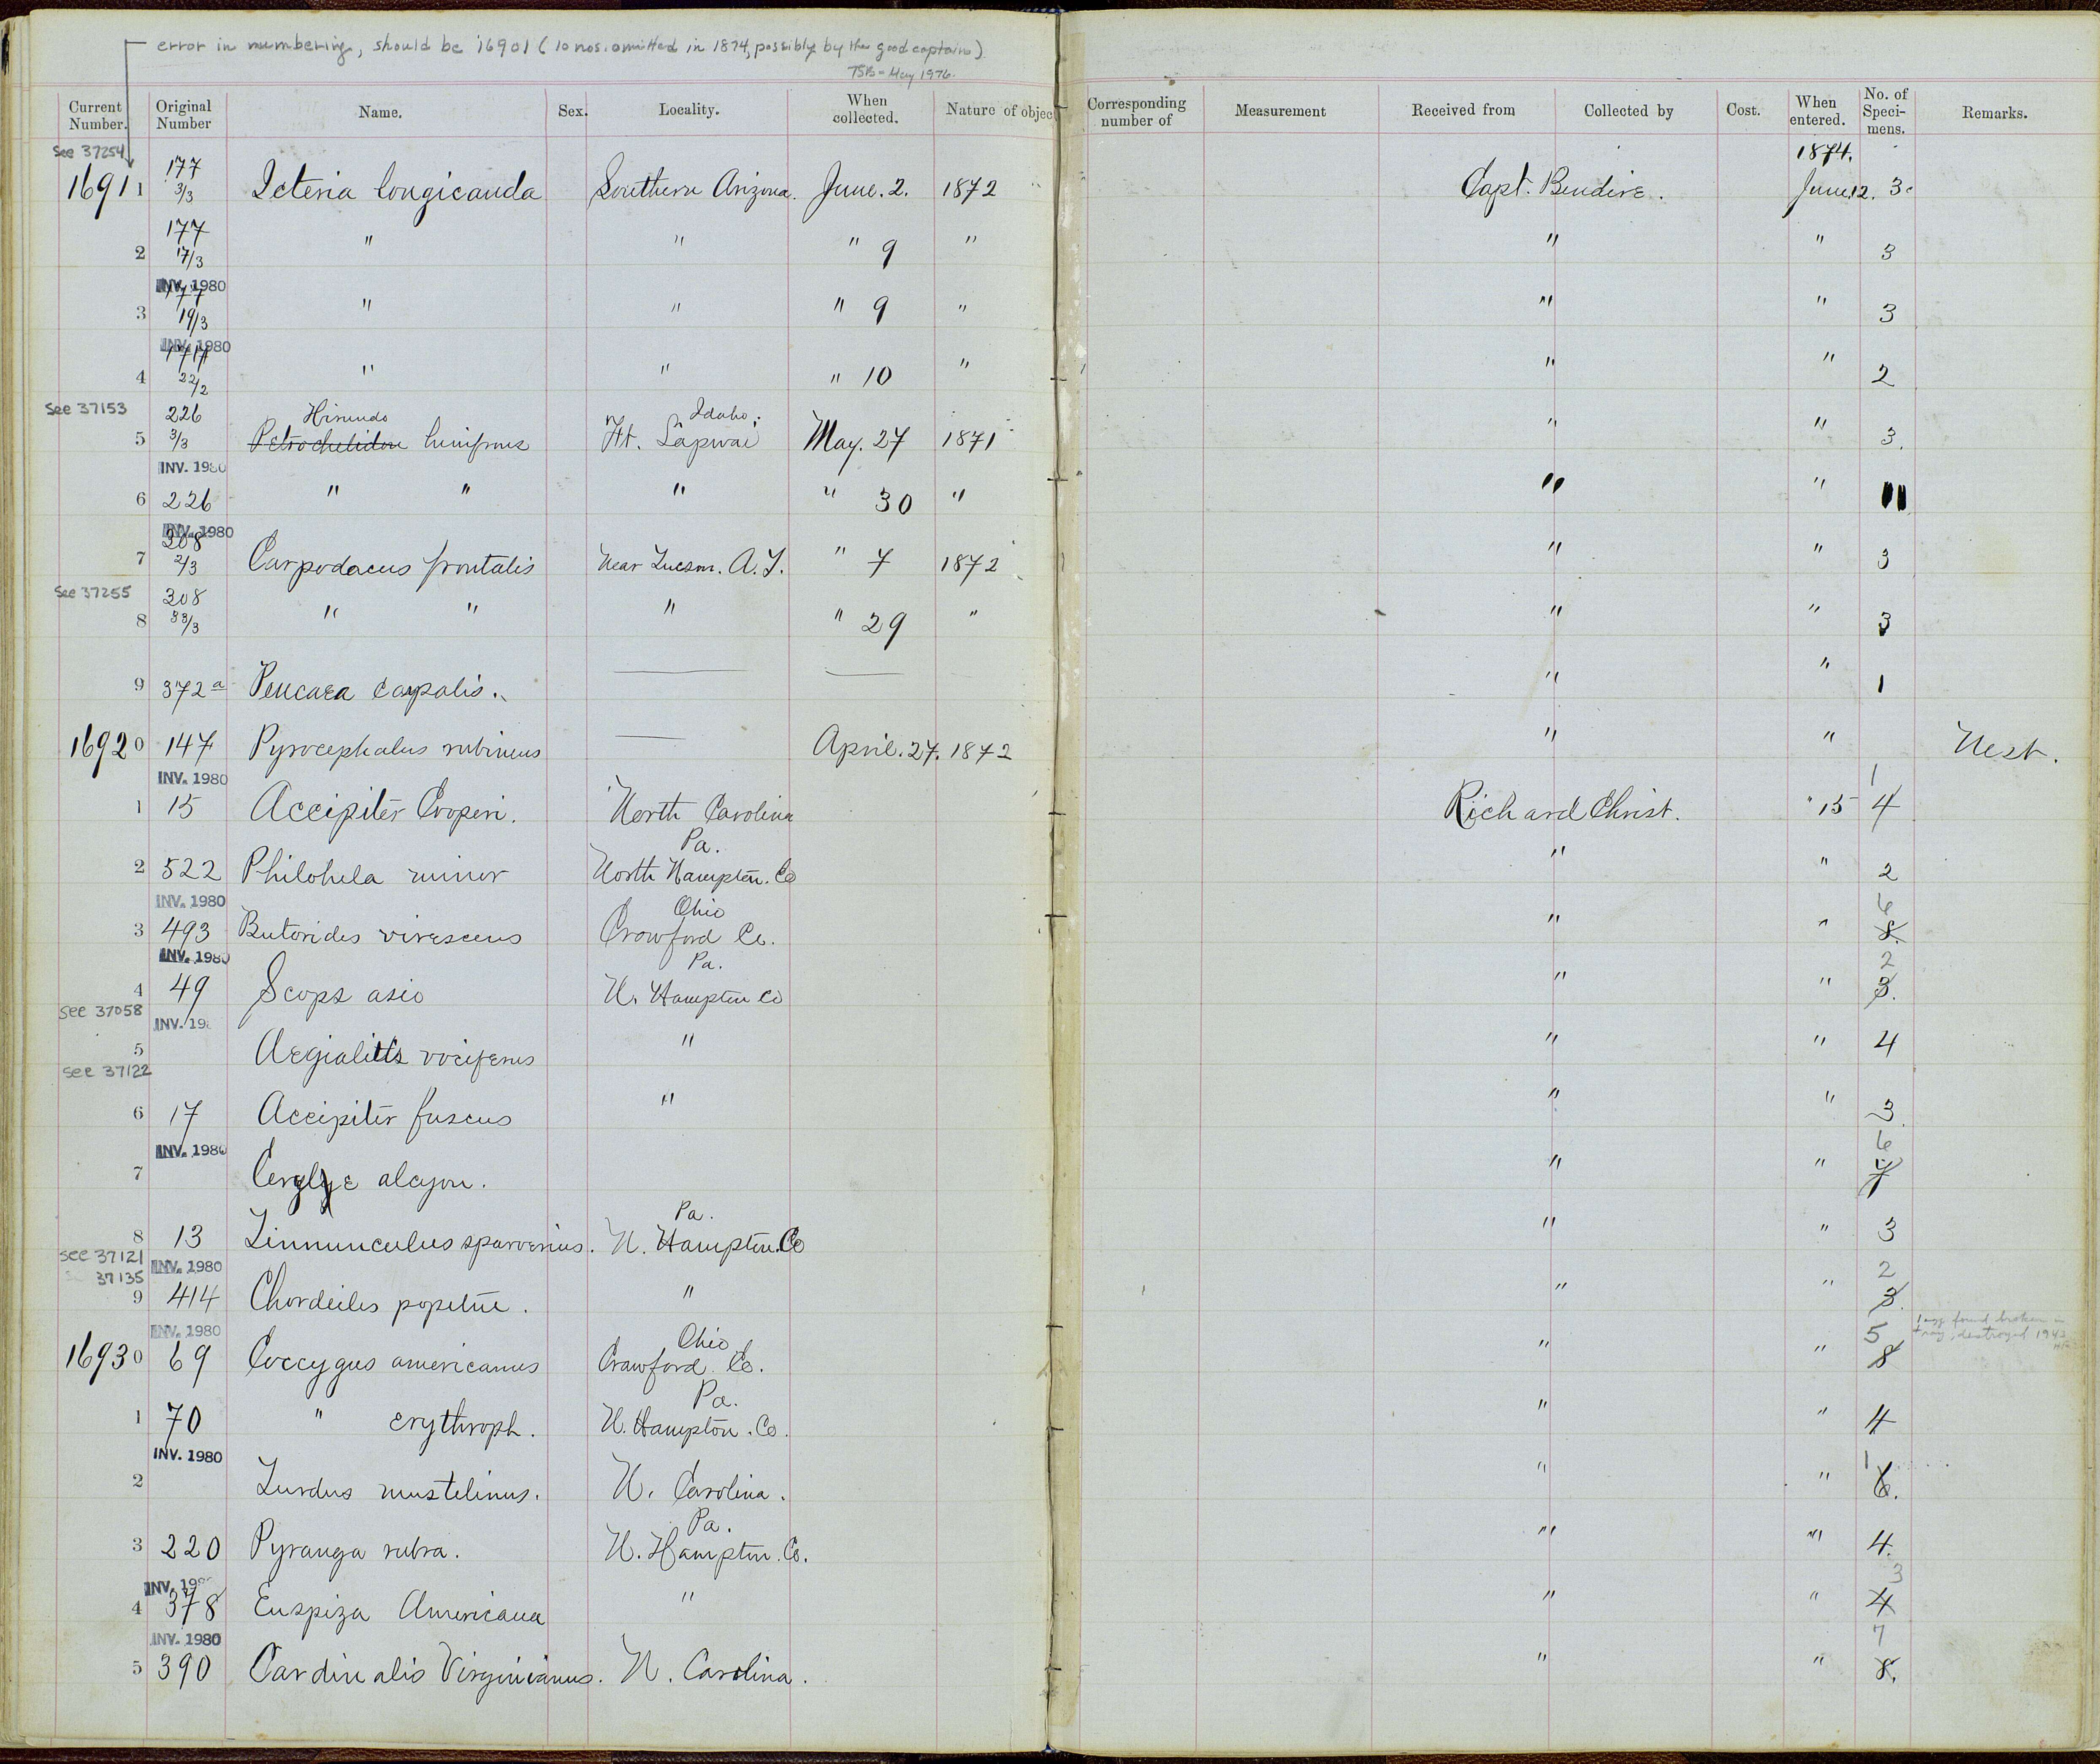 error in numbering, should be 16901 (10 nos. omitted in 1874, possibly by the good captain)
TSB - May 1976.
Current Number. Original Number Name. Sex. Locality. When collected. Nature of objec Corresponding number of Measurement Received from Collected by Cost. When entered. No. of Speci-mens. Remarks.
See 37254
1874.
16911 177 3/3 Icteria longicauda Southern Arizona. June. 2. 1872 Capt. Bendire. June 12. 3.
2 177 17/3 " " " 9 " " " 3
INV. 1980
3 177 19/3 " " " 9 " " " 3
INV. 1980
4 177 22/2 " " " 10 " " " 2
See 37153
5 226 3/3 Petrochelidon Hirundo lunifrons Ft. Lapwai Idaho. May. 27 1871 " " 3.
INV. 1980
6 226 " " " " 30 " " " 11
INV. 1980
7 308 2/3 Carpodacus frontalis Near Tucson. A.T. " 7 1872 " " 3
See 37255
8 308 33/3 " " " " 29 " " " 3
9 372a Peucaea carpalis. " " 1
16920 147 Pyrocephalus rubineus April. 27. 1872 " " Nest.
INV. 1980
1 15 Accipiter Cooperi. North Carolina Richard Christ. " 15 4 1
2 522 Philohela minor North Hampton. Co Pa. " " 2
INV. 1980
3 493 Butorides virescens Crowford Co. Ohio " " 8. 6
INV. 1980
4 49 Scops asio N. Hampton Co Pa. " " 3. 2
See 37058
INV. 198
5 Aegialitis vociferus " " " 4
See 37122
6 17 Accipiter fuscus " " " 3
INV. 1980
7 Ceryle alcyon. " " 7 6
8 13 Tinnunculus sparverius. N. Hampton. Co Pa. " " 3
See 37121
37135
INV. 1980
9 414 Chordeiles popetue. " " " 3. 2
INV. 1980
16930 69 Coccygus americanus Crawford Co. Ohio " " 8 5 1 egg found broken in tray, destroyed 1943
1 70 " erythroph. N. Hampton. Co. Pa. " " 4
INV. 1980
2 Turdus mustelinus. N. Carolina. " " 6. 1
3 220 Pyranga rubra. N. Hampton. Co. Pa. " " 4.
INV. 198
4 378 Euspiza Americana " " " 4 3
INV. 1980
5 390 Cardinalis Virginianus. N. Carolina. " " 8. 7